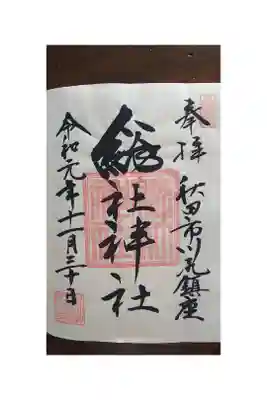 奉拝 秋田市川尻鎮座
総社神社
令和元年十一月三十日